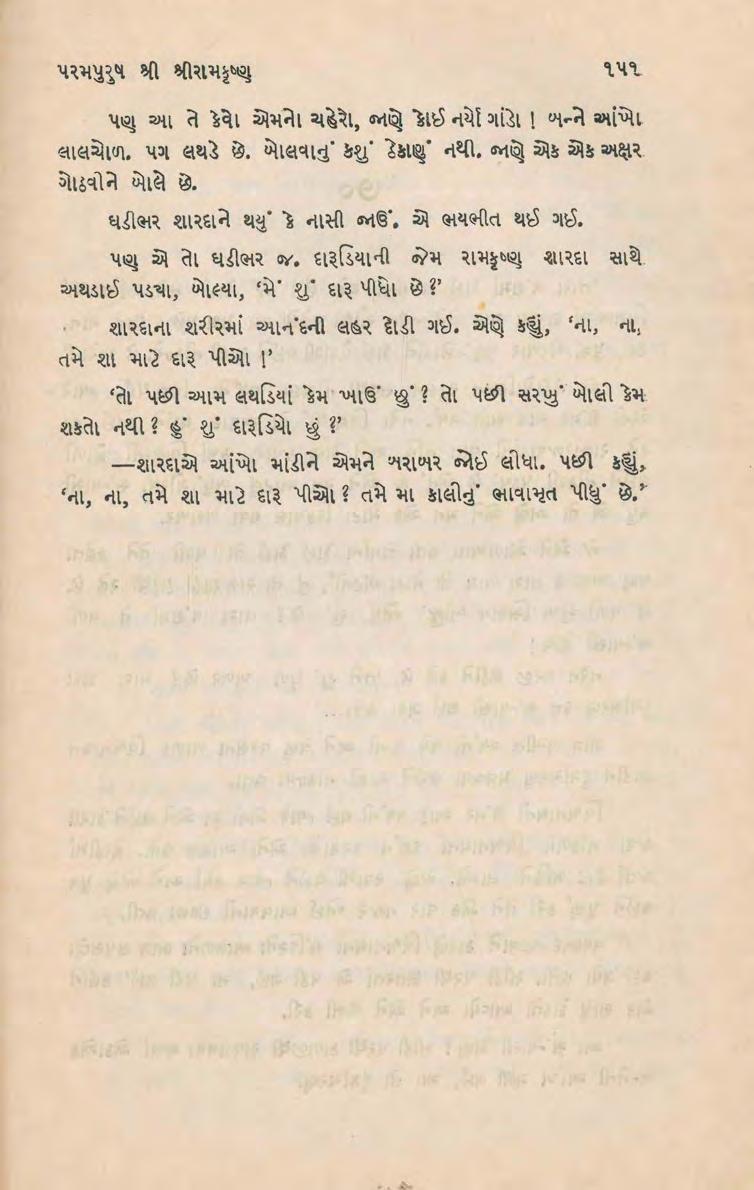 પરમપુરુષ શ્રી શ્રીરામકૃષ્ણ ૧૫૧
પણ આ તે કેવો એમનો ચહેરો, જાણે કોઈ નર્યો ગાંડો ! બન્ને આંખો
લાલચોળ. પગ લથડે છે. બોલવાનું કશું ઠેકાણું નથી. જાણે એક એક અક્ષર
ગોઠવીને બોલે છે.
ઘડીભર શારદાને થયું કે નાસી જાઉં. એ ભયભીત થઈ ગઈ.
પણ એ તો ઘડીભર જ. દારૂડિયાની જેમ રામકૃષ્ણ શારદા સાથે
અથડાઈ પડ્યા, બોલ્યા, ‘મેં શું દારૂ પીધો છે ?’
શારદાના શરીરમાં આનંદની લહર દોડી ગઈ. એણે કહ્યું, ‘ના, ના,
તમે શા માટે દારૂ પીઓ !’
‘તો પછી આમ લથડિયાં કેમ ખાઉં છું ? તો પછી સરખું બોલી કેમ
શકતો નથી ? હું શું દારૂડિયો છું ?’
—શારદાએ આંખો માંડીને એમને બરાબર જોઈ લીધા. પછી કહ્યું,
‘ના, ના, તમે શા માટે દારૂ પીઓ ? તમે મા કાલીનું ભાવામૃત પીધું છે.’